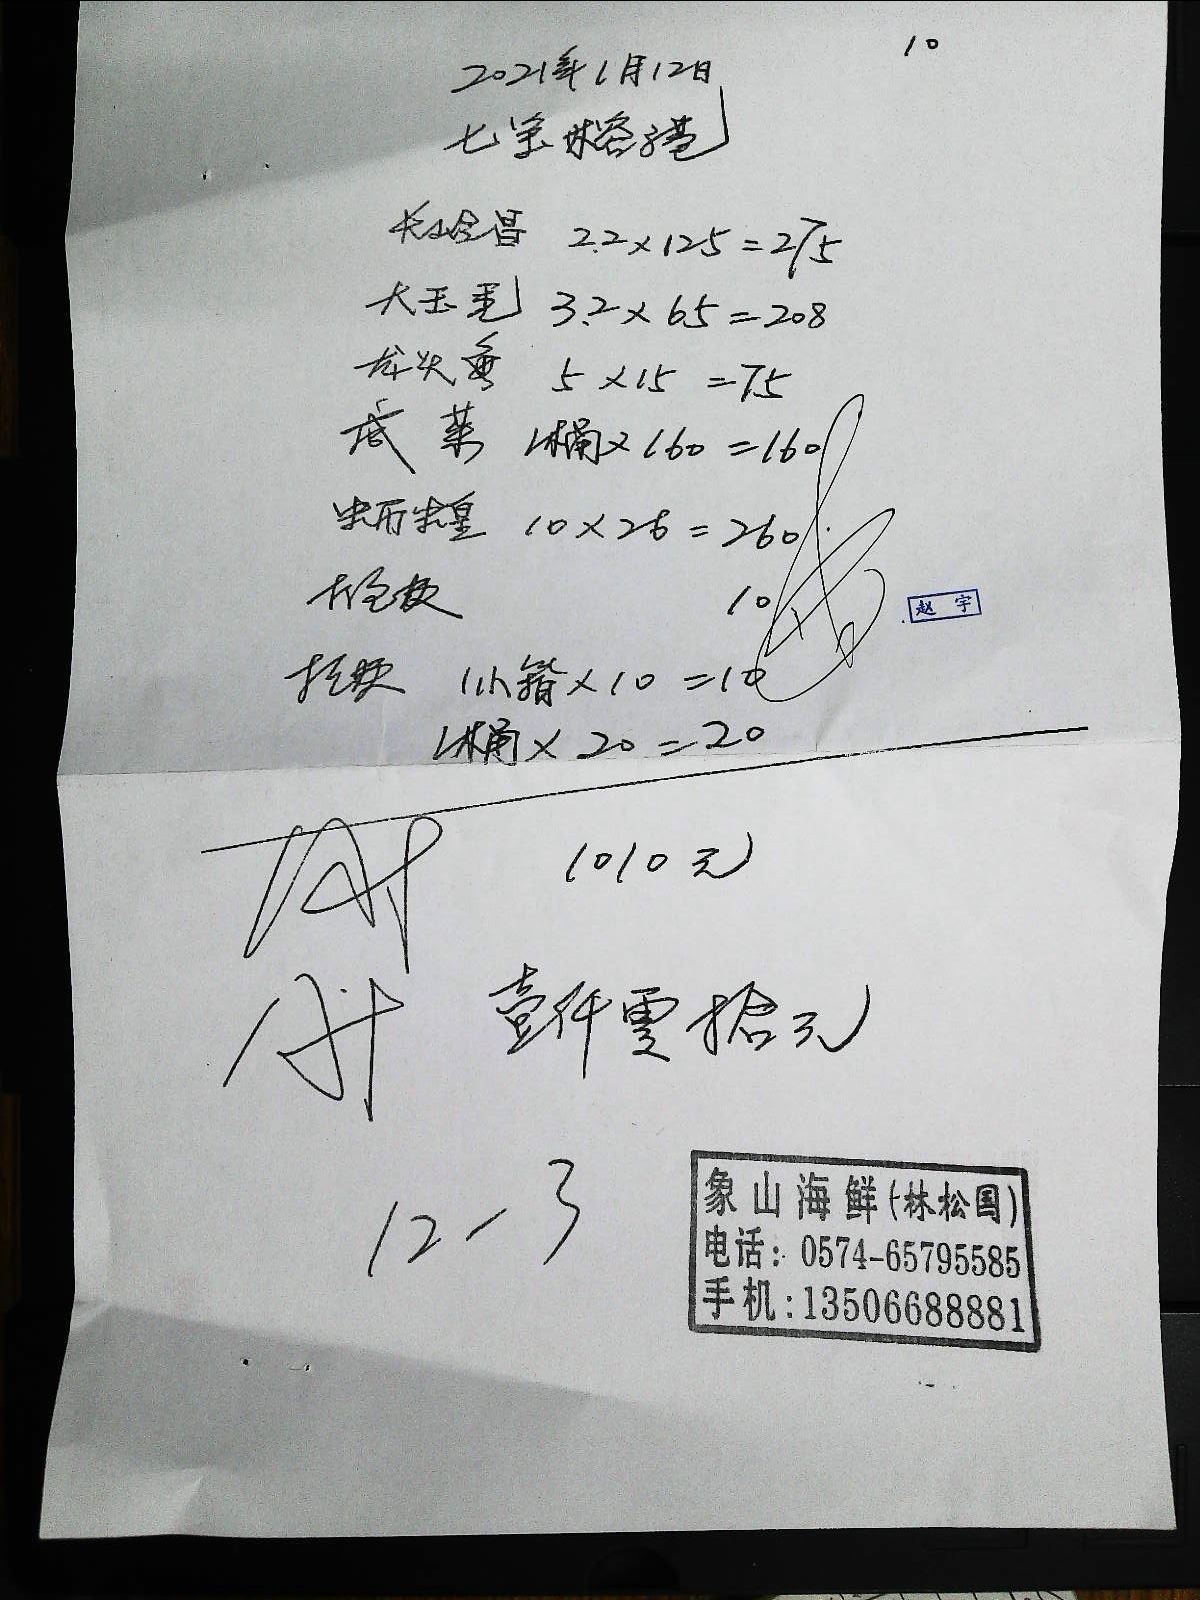 10
2021年1月12日
七
长 昌 2.2×125=275
大玉毛 3.2×65=208
龙头鱼 5×15=75
底菜 1桶×160=160
10×26=260
10
赵宇
1小箱×10=10
1桶×20=20
1010元
壹仟零拾元
12-3
象山海鲜(林松国)
电话:0574-65795585
手机:13506688881